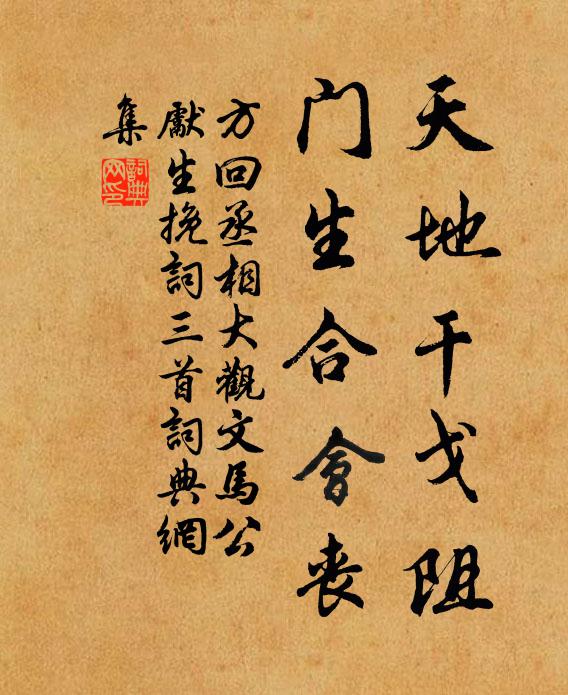 天地干戈阻
门生合會喪
方回丞相大觀文馬公
獻生挽詞三首詞典網
集
詞典网印